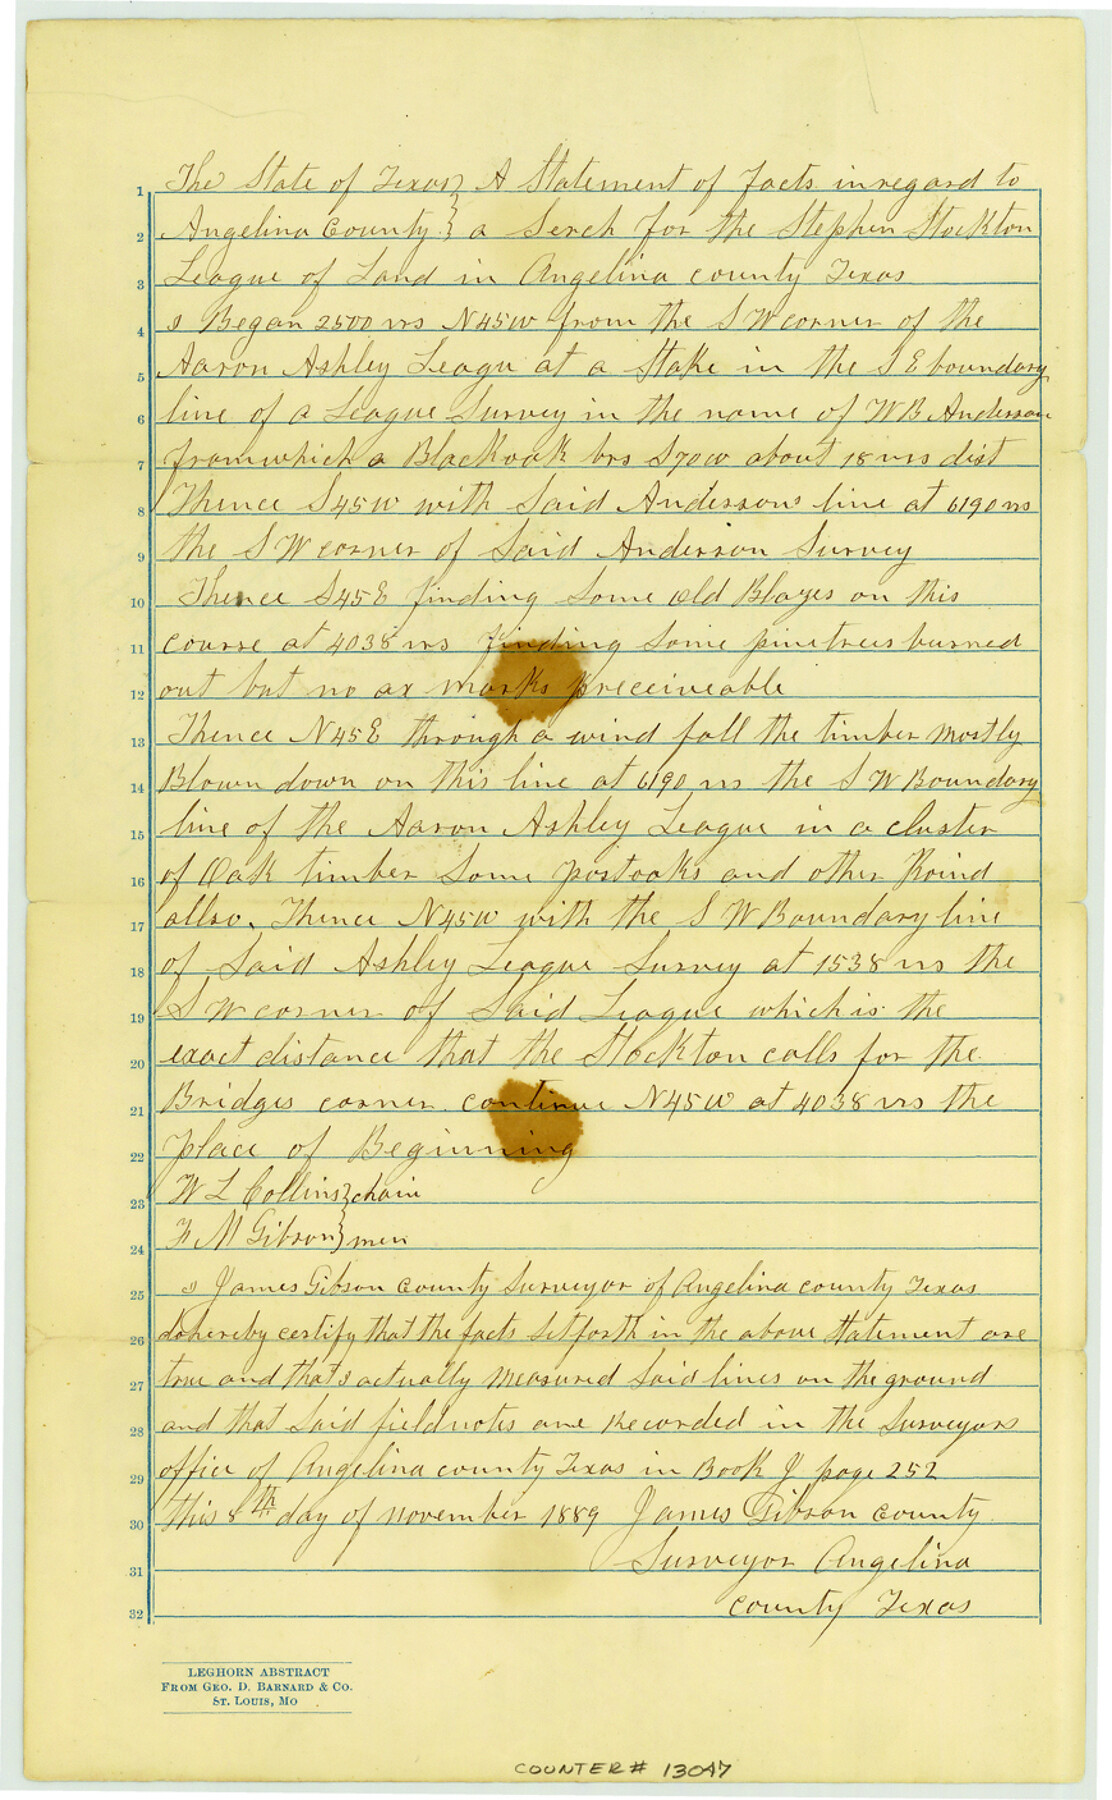 The State of Texas } A Statement of facts in regard to
1
Angelina County } a Serch for the Stephen Stockton
2
League of Land in Angelina county Texas
3
I Began 2500 vrs N45W from the S W corner of the
4
Aaron Ashley Leagu at a Stake in the S E boundary
5
line of a League Survey in the name of W B Anderson
6
from which a Blackoak brs S70W about 18 vrs dist
7
Thence S45W with Said Andersons line at 6190 vrs
8
the S W corner of Said Anderson Survey
9
Thence S45E finding Some old Blazes on this
10
course at 4038 vrs finding Some pinetrees burned
11
out but no ax marks preceiveable
12
Thence N45E through a wind fall the timber mostly
13
Blown down on this line at 6190 vrs the S W Boundary
14
line of the Aaron Ashley League in a cluster
15
of Oak timber Some postoaks and other Kind
16
allso. Thence N45W with the S W Boundary line
17
of Said Ashley League Survey at 1538 vrs the
18
S W corner of Said League which is the
19
exact distance that the Stockton calls for the
20
Bridges corner continue N45W at 4038 vrs the
21
place of Beginning
22
W L Collins } chain
23
F M Gibson } men
24
I James Gibson County Surveyor of Angelina county Texas
25
do hereby certify that the facts Setforth in the above Statement are
26
true and that I actually measured Said lines on the ground
27
and that Said fieldnotes are Recorded in the Surveyors
28
office of Angelina county Texas in Book J page 252
29
this 8th day of november 1889 James Gibson county
30
Surveyor Angelina
31
county Texas
32
LEGHORN ABSTRACT
FROM GEO. D. BARNARD & CO.
ST. LOUIS, MO
COUNTER# 13047